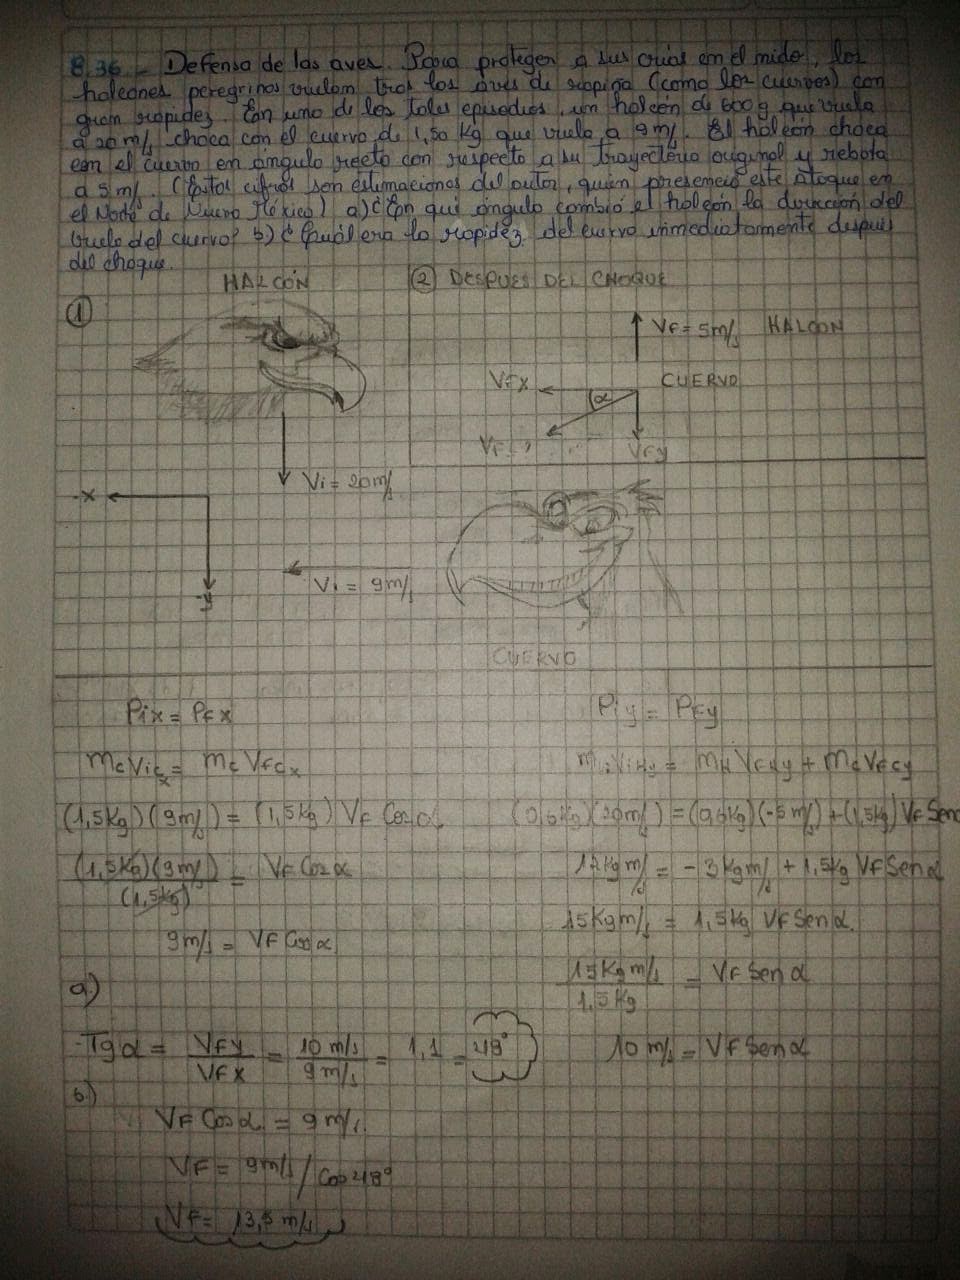 8.36.- Defensa de las aves. Para proteger a sus crías en el nido, los
halcones peregrinos vuelan tras las aves de rapiña (como los cuervos) con
gran rapidez. En uno de los tales episodios, un halcón de 600g que vuela
a 20 m/s choca con el cuervo de 1,50 Kg que vuela a 9m/s. El halcón choca
con el cuervo en ángulo recto con respecto a su trayectoria original y rebota
a 5 m/s. (Estas cifras son estimaciones del autor, quien presenció este ataque en
el Norte de Nuevo México) a) ¿En qué ángulo cambió el halcón la dirección del
vuelo del cuervo? b) ¿Cuál era la rapidez del cuervo inmediatamente después
del choque.
HALCÓN
② DESPUES DEL CHOQUE
①
VF = 5m/s HALCON
VFX
CUERVO
α
VF
VFy
Vi = 20m/s
-X
-y
Vi = 9m/s
CUERVO
Pix = PFx
mcVicx = mcVFcx
(1,5Kg)(9m/s) = (1,5Kg) VF Cosα
(1,5Kg)(9m/s) / (1,5Kg) = VF Cosα
9m/s = VF Cosα
Piy = PFy
mHViHy = mH VFHy + mcVFcy
(0,6Kg)(20m/s) = (0,6Kg)(-5m/s) + (1,5Kg) VF Senα
12Kgm/s = -3Kgm/s + 1,5Kg VF Senα
15Kgm/s = 1,5Kg VF Senα
15Kgm/s / 1,5Kg = VF Senα
10 m/s = VF Senα
a)
Tgα = VFY / VFX = 10 m/s / 9 m/s = 1,1 = 48°
b)
VF Cosα = 9 m/s
VF = 9m/s / Cos 48°
VF = 13,5 m/s